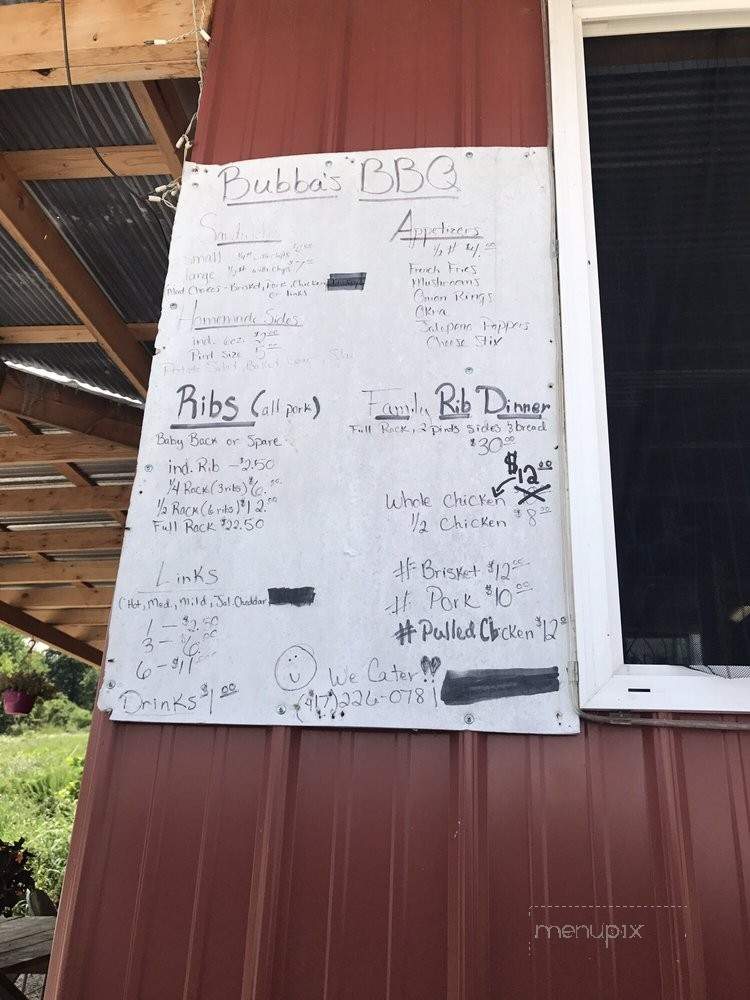 Bubba's BBQ
Sandwiches
small 1/4 # with chips
large 1/2 # with chips $7.00
Meat Choices - Brisket, Pork, Chicken,
or links
Homemade Sides
ind. 6oz. $2.00
Pint Size 5.00
Potato Salad, Baked
Appetizers
1/2 # $4.00
French Fries
Mushrooms
Onion Rings
Okra
Jalapeno Poppers
Cheese Stix
Ribs (all pork)
Baby Back or Spare
ind. Rib - $2.50
1/4 Rack (3 ribs) $6.00
1/2 Rack (6 ribs) $12.00
Full Rack $22.50
Family Rib Dinner
Full Rack, 2 pints sides & bread
$30.00
$12.00
Whole Chicken
1/2 Chicken $8.00
# Brisket $12.00
# Pork $10.00
# Pulled Chicken $12.00
Links
(Hot, Med., Mild, Jal. Cheddar,
1 - $2.50
3 - $6.00
6 - $11.00
Drinks $1.00
We Cater!!
(417) 226-0781
menupix